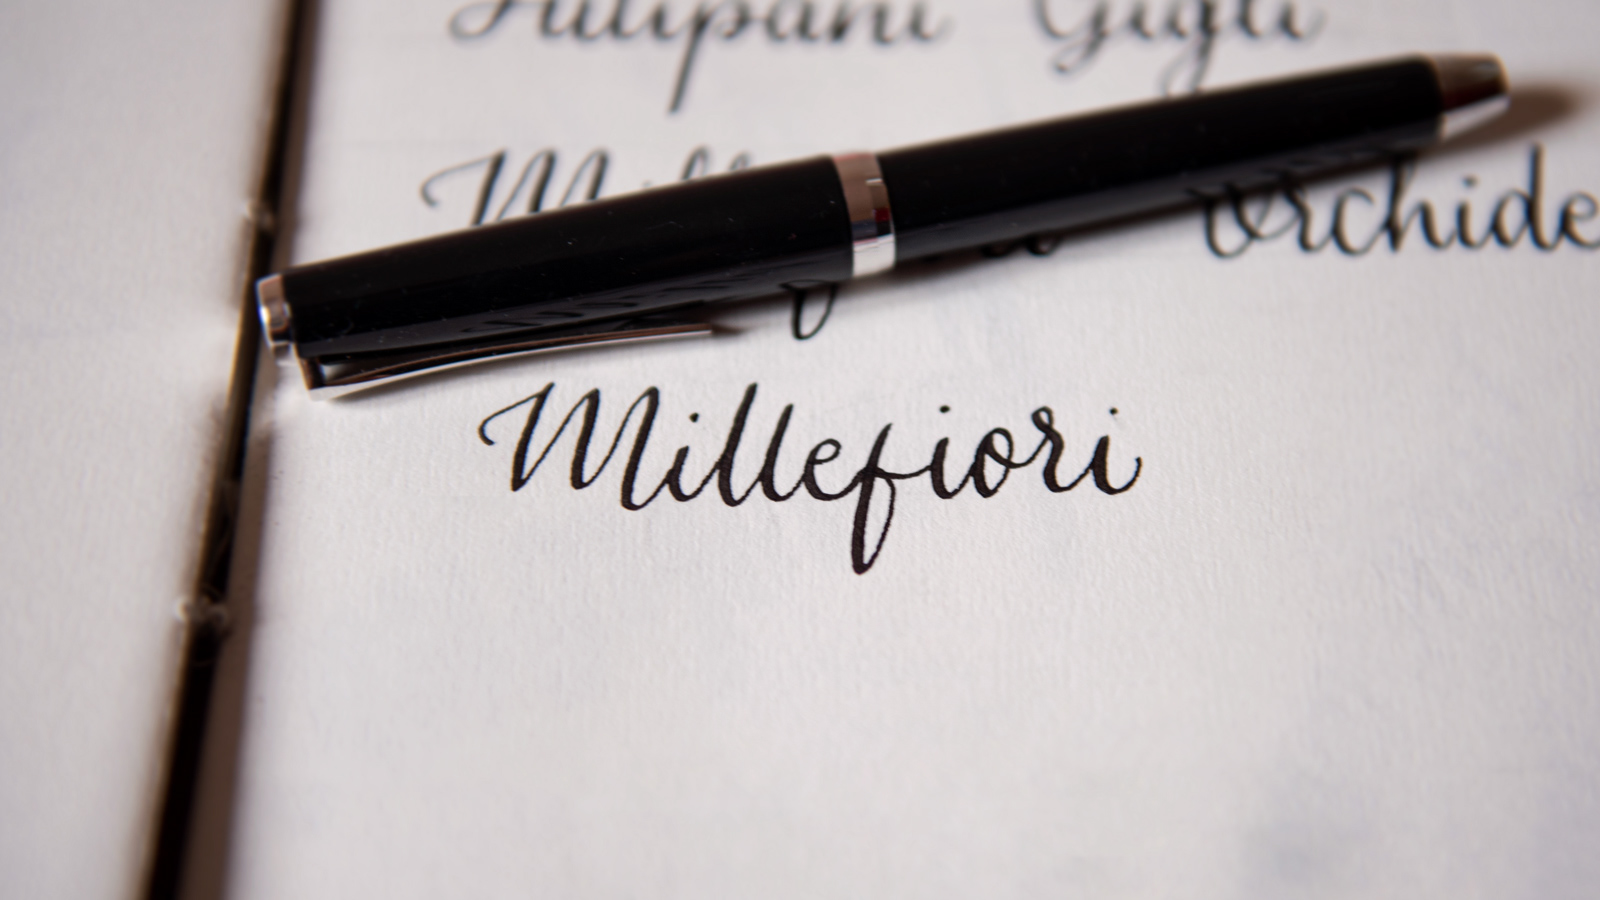 Tulipani Gigli
Orchide
Millefiori